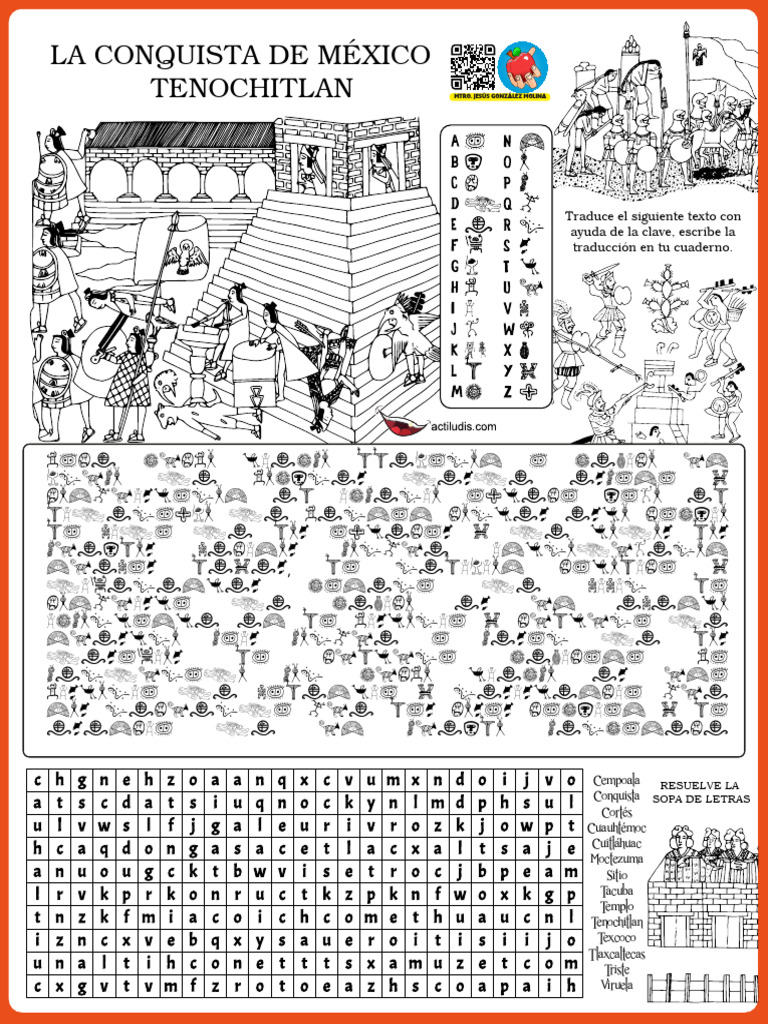 LA CONQUISTA DE MÉXICO
TENOCHITLAN
MTRO. JESÚS GONZÁLEZ MOLINA
A N
B O
C P
D Q
E R
F S
G T
H U
I V
J W
K X
L Y
M Z
Traduce el siguiente texto con
ayuda de la clave, escribe la
traducción en tu cuaderno.
actiludis.com
c h g n e h z o a a n q x c v u m x n d o i j v o
a t s c d a t s i u q n o c k y n l m d p h s u l
u l v w s l f j g a l e u r i v r o z k j o w p t
h c a q d o n g a s a c e t l a c x a l t s a j e
a n u o u g c k t b w v i s e t r o c j b p e a m
l r v k p r k o n r u c t k z p k n f w o x k g p
t n z k f m i a c o i c h c o m e t h u a u c n l
i z n c x v e b q x y s a u e r o i t i s i i j o
u n a l t i h c o n e t t t s x a m u z e t c o m
c x g v t v m f z r o t o e a z h s c o a p a i h
Cempoala
Conquista
Cortés
Cuauhtémoc
Cuitláhuac
Moctezuma
Sitio
Tacuba
Templo
Tenochitlan
Texcoco
Tlaxcaltecas
Triste
Viruela
RESUELVE LA
SOPA DE LETRAS